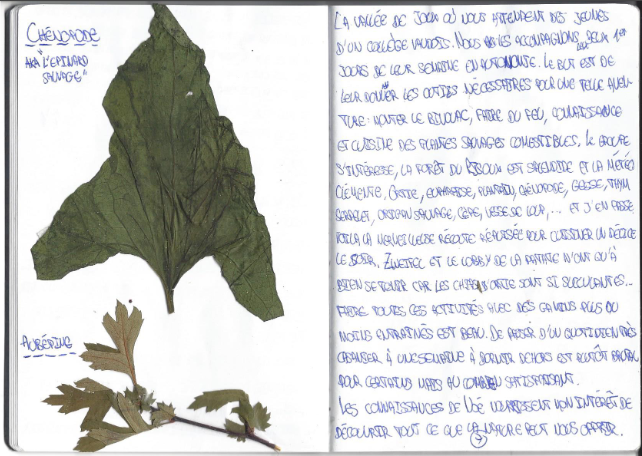 CHÉNOPODE
"AKA L'ÉPINARD
SAUVAGE"
AUBÉPINE
LA VALLÉE DE JOUX OÙ NOUS ATTENDENT DES JEUNES
D'UN COLLÈGE VAUDOIS. NOUS LES ACCOMPAGNONS, DEUX 1ER
JOURS DE LEUR SEMAINE EN AUTONOMIE. LE BUT EST DE
LEUR DONNER LES OUTILS NÉCESSAIRES POUR UNE TELLE AVEN-
TURE: MONTER LE BIVOUAC, FAIRE DU FEU, CONNAISSANCE
ET CUISINE DES PLANTES SAUVAGES COMESTIBLES. LE GROUPE
S'INTÉRESSE, LA FORÊT DU RISOUX EST SPLENDIDE ET LA MÉTÉO
CLÉMENTE. ORTIE, EUPHRAISE, PLANTAIN, CHÉNOPODE, GESSE, THYM
SERPOLET, ORIGAN SAUVAGE, CÈPE, VESSE DE LOUP, ... ET J'EN PASSE
VOILÀ LA MERVEILLEUSE RÉCOLTE RÉALISÉE POUR CUISINER UN DÉLICE
LE SOIR. ZWEIFEL ET LE LOBBY DE LA PATATE N'ONT QU'À
BIEN SE TENIR CAR LES CHIPS D'ORTIE SONT SI SUCCULENTES...
FAIRE TOUTES CES ACTIVITÉS AVEC DES GAMINS PLUS OU
MOINS ENTRAÎNÉS EST BEAU. DE PASSER D'UN QUOTIDIEN TRÈS
À UNE SEMAINE À DORMIR DEHORS EST PLUTÔT BRUTAL
POUR CERTAINS MAIS AU COMBIEN SATISFAISANT.
LES CONNAISSANCES DE NOÉ NOURRISSENT MON INTÉRÊT DE
DÉCOUVRIR TOUT CE QUE LA NATURE PEUT NOUS OFFRIR.